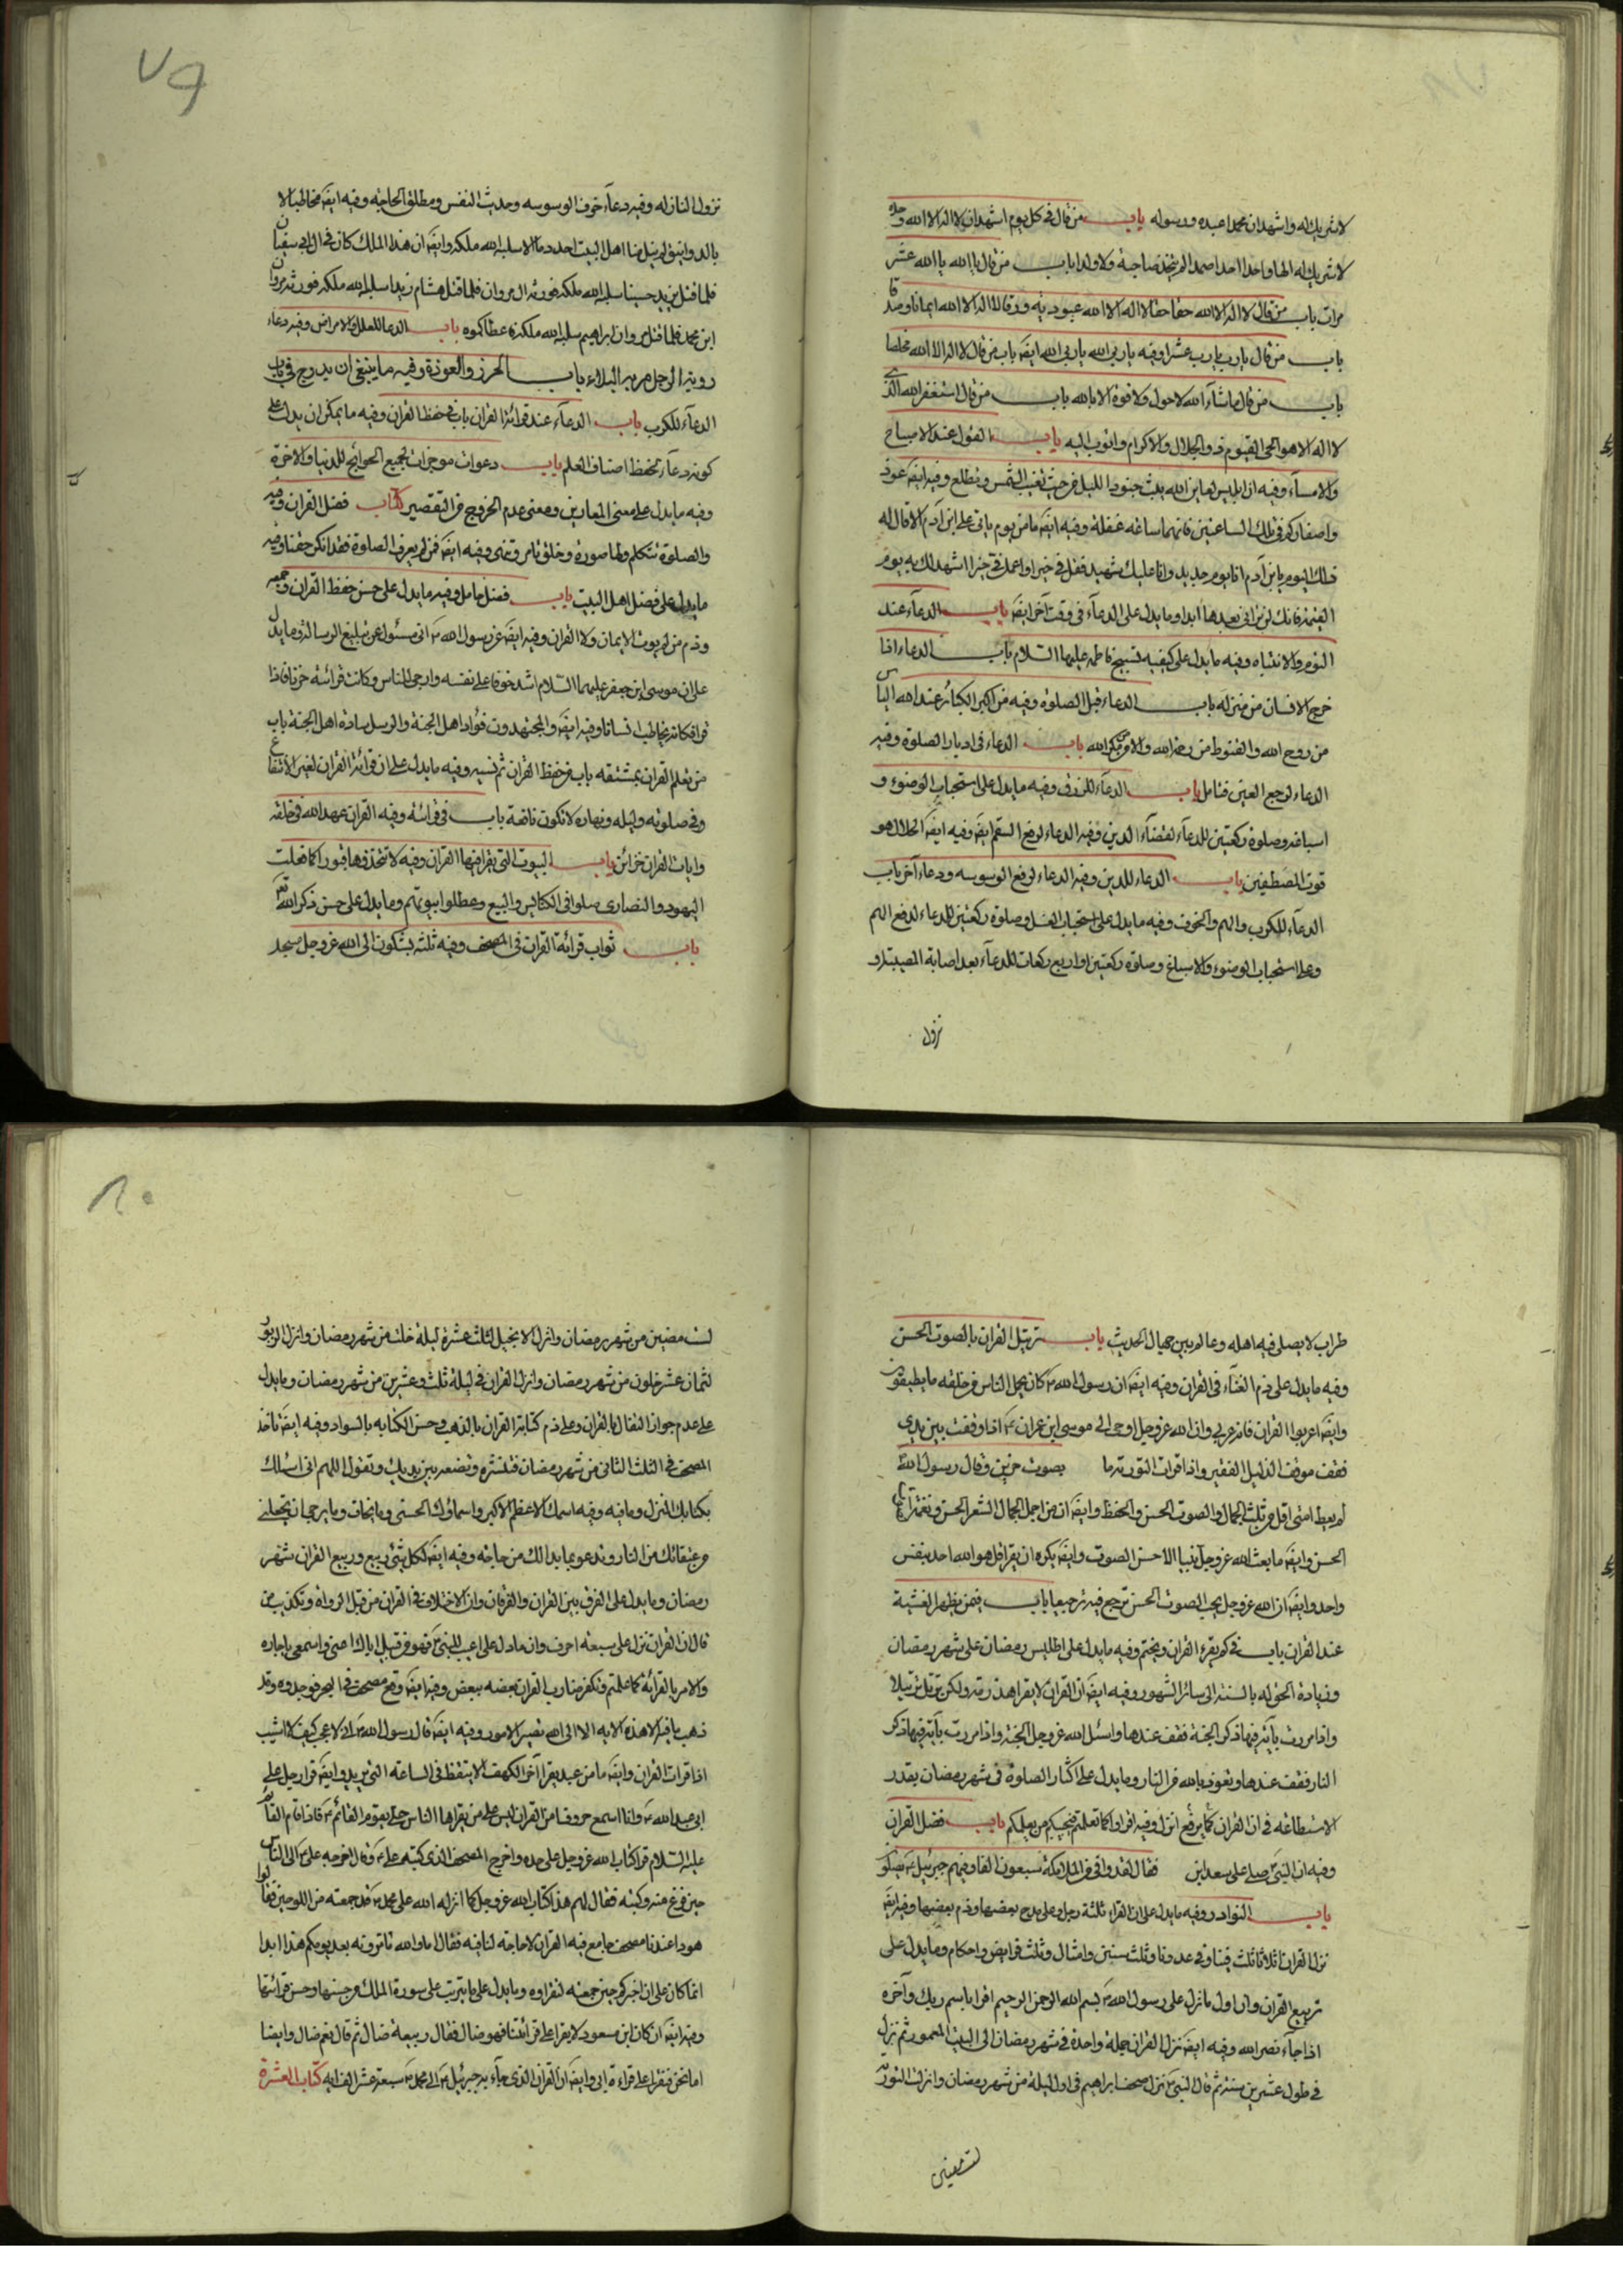 لاشريك له واشهدان محمدا عبده ورسوله باب من قال في كل يوم اشهدان لا اله الا الله وحده
لاشريك له الها واحدا احدا صمدا لم يتخذ صاحبة ولا ولدا باب من قال يا الله يا الله عشر
مرات باب من قال لا اله الا الله حقا حقا لا اله الا الله عبودية ورقا لا اله الا الله ايمانا وصدقا
باب من قال يارب يارب عشرا وفيه ياربي الله ياربي الله ايضَ باب من قال لا اله الا الله مخلصا
باب من قال ماشاء الله لاحول ولاقوة الا بالله باب من قال استغفر الله الذي
لا اله الا هو الحي القيوم ذو الجلال والاكرام واتوب اليه باب القول عند الاصباح
والامساء وفيه ان ابليس لعاين الله يبث جنود الليل من حيث تغيب الشمس وتطلع وفيه ايضَ عوذ
واصغاركم في تلك الساعتين فانهما ساعة غفلة وفيه ايضَ ما من يوم ياتي على ابن آدم الا قال له
ذلك اليوم يابن آدم انا يوم جديد وانا عليك شهيد فقل في خيرا واعمل في خيرا اشهد لك به يوم
القيمة فانك لن تراني بعدها ابدا وما يدل على الدعاء في وقت آخر ايضَ باب الدعاء عند
النوم والانتباه وفيه ما يدل على كيفيه تسبيح فاطمه عليها السلام باب الدعاء اذا
خرج الانسان من منزله باب الدعاء قبل الصلوة وفيه من اكبر الكبائر عند الله الياس
من روح الله والقنوط من رحمة الله والامن من مكر الله باب الدعاء في ادبار الصلوة وفيه
الدعاء لوجع العين فتامل باب الدعاء للرزق وفيه ما يدل على استحباب الوضوء و
اسباغه وصلوة ركعتين للدعاء لقضاء الدين وفيه الدعاء لرفع السقم ايضَ وفيه ايضَ الحلال هو
قوت المصطفين باب الدعاء للدين وفيه الدعاء لرفع الوسوسه ودعاء آخر باب
الدعاء للكرب والهم والخوف وفيه ما يدل على استحباب الغسل وصلوة ركعتين للدعاء لدفع الهم
وعلى استحباب الوضوء والاسباغ وصلوة ركعتين او اربع ركعات للدعاء بعد اصابة المصيبة او
نزول
٧٩
نزول النازله وفيه دعاء خوف الوسوسه وحديث النفس ومطلق الحاجة وفيه ايضَ مخاطبا لا
بالدوانيق لم ينل منا اهل البيت احد دما الا سلبه الله ملكه وايضَ ان هذا الملك كان في ال ابي سفيان
فلما قتل يزيد حسينا سلبه الله ملكه فورثه ال مروان فلما قتل هشام زيدا سلبه الله ملكه فورثه مروان
ابن محمد فلما قتل مروان ابراهيم سلبه الله ملكه فاعطاكموه باب الدعا للعلل والامراض وفيه دعاء
رؤية الرجل مر به البلاء باب الحرز والعوذة وفيه ما ينبغي ان يدرج في باب
الدعاء للكرب باب الدعاء عند قرائة القران باب في حفظ القران وفيه ما يمكن ان يدل على
كونه دعاء لحفظ اصناف العلم باب دعوات موجزات لجميع الحوائج للدنيا والاخرة
وفيه ما يدل على معنى المعارين ومعنى عدم الخروج من التقصير كتاب فضل القران وفيه
والصلوة تتكلم ولها صورة وخلق تامر وتنهى وفيه ايضَ فمن لم يعرف الصلوة فقد انكر حقنا وفيه
ما يدل على فضل اهل البيت باب فضل حامل وفيه ما يدل على حسن حفظ القران وجمعه
وذم من لم يوت الايمان ولا القران وفيه ايضَ عن رسول الله ص اني مسئول عن تبليغ الرسالة وما يدل
على ان موسى ابن جعفر عليهما السلام اشد خوفا على نفسه وارجى للناس وكانت قرائته حزنا فاذا
قرا فكانه يخاطب انسانا وفيه ايضَ والمجتهدون قواد اهل الجنة والرسل سادة اهل الجنة باب
من تعلم القران بمشقه باب من حفظ القران ثم نسيه وفيه ما يدل على ان قرائة القران لغير الانتفاع
وفي صلوته وليله ونهاره لا تكون ناقصة باب في قرائته وفيه القران عهد الله في خلقه
وايات القران خزائن باب البيوت التي يقرا فيها القران وفيه لا تتخذوها قبورا كما فعلت
اليهود والنصارى صلوا في الكنائس والبيع وعطلوا بيوتهم وما يدل على حسن ذكر الله تع
باب ثواب قرائة القران في المصحف وفيه ثلثه يشكون الى الله عز وجل مسجد
طراب لا يصلي فيه اهله وعالم بين جهال الحديث باب ترتيل القران بالصوت الحسن
وفيه ما يدل على ذم الغناء في القران وفيه ايضَ ان رسول الله ص كان يحمل الناس من خلقه ما يطيقون
وايضَ اعربوا القران فانه عربي وان الله عز وجل اوحى الى موسى ابن عمران ع اذا وقفت بين يدي
فقف موقف الذليل الفقير واذا قرات التورية بصوت حزين وقال رسول الله ص
لم يعط امتي اقل من ثلث الجمال والصوت الحسن والحفظ وايضَ ان من اجمل الجمال الشعر الحسن ونغمة الصوت
الحسن وايضَ ما بعث الله عز وجل نبيا الا حسن الصوت وايضَ يكره ان يقرا قل هو الله احد بنفس
واحد وايضَ ان الله عز وجل يحب الصوت الحسن ترجع فيه ترجيعا باب فيمن يظهر الغشية
عند القران باب في كم يقرء القران ويختم وفيه ما يدل على اطلاق رمضان على شهر رمضان
وزيادة الحق له بالنسبة الى سائر الشهور وفيه ايضَ ان القران لا يقرا هذرمة ولكن يرتل ترتيلا
واذا مررت بآية فيها ذكر الجنة فقف عندها واسئل الله عز وجل الجنة واذا مررت بآية فيها ذكر
النار فقف عندها وتعوذ بالله من النار وما يدل على اكثار الصلوة في شهر رمضان بقدر
الاستطاعه في ان القران كما يرفع انزل وفيه اقراوا كما تعلمتم فيجيئكم من يعلمكم باب فضل القران
وفيه ان النبي ص صلى على سعد ابن فقال لقد وافى من الملائكة سبعون الفا وفيهم جبرئيل ع يصلون
باب النوادر وفيه ما يدل على ان القراء ثلثة رجل وعلى مدح بعضها وذم بعضها وفيه ايضَ
نزل القران اثلاثا ثلث فينا وفي عدونا وثلث سنن وامثال وثلث فرايض واحكام وما يدل على
تربيع القران وان اول ما نزل على رسول الله ص بسم الله الرحمن الرحيم اقرا باسم ربك وآخره
اذا جاء نصر الله وفيه ايضَ نزل القران جملة واحدة في شهر رمضان الى البيت المعمور ثم نزل
في طول عشرين سنة ثم قال النبي ص نزل صحف ابراهيم في اول ليلة من شهر رمضان وانزلت التورية
لست مضين
٨٠
لست مضين من شهر رمضان وانزل الانجيل لثلث عشرة ليلة خلت من شهر رمضان وانزل الزبور
لثمان عشر خلون من شهر رمضان وانزل القران في ليلة ثلث وعشرين من شهر رمضان وما يدل
على عدم جواز التفال بالقران وعلى ذم كتابة القران بالذهب وحسن الكتابه بالسواد وفيه ايضَ تاخذ
المصحف في الثلث الثاني من شهر رمضان فتنشره وتضعه بين يديك وتقول اللهم اني اسئلك
بكتابك المنزل وما فيه وفيه اسمك الاعظم الاكبر واسماؤك الحسنى وما يخاف وما يرجى ان تجعلني
من عتقائك من النار وتدعو بما بدالك من حاجة وفيه ايضَ لكل شئ ربيع وربيع القران شهر
رمضان وما يدل على الفرق بين القران والفرقان وان الاختلاف في القران من قبل الرواة وتكذيب من
قال ان القران نزل على سبعة احرف وان ما دل على اعيب للنبي ص فهو من قبيل اياك اعني واسمعي يا جاره
والامر بالقرائة كما علمتم وتكفير ضارب القران بعضه ببعض وفيه ايضَ وقع مصحف في البحر فوجدوه وقد
ذهب ما فيه الا هذه الايه الا الى الله تصير الامور وفيه ايضَ قال رسول الله ص اني لاعجب كيف لا اشيب
اذا قرات القران وايضَ ما من عبد يقرا آخر الكهف الا يتقظ في الساعة التي يريد وايضَ قرا رجل على
ابي عبد الله ع وانا اسمع حروفا من القران ليس على ما يقراها الناس حتى يقوم القائم ع فاذا قام القائم
عليه السلام قرا كتاب الله عز وجل على حده واخرج المصحف الذي كتبه علي ع وقال اخرجه علي ع الى الناس
حين فرغ منه وكتبه فقال لهم هذا كتاب الله عز وجل كما انزله الله على محمد ص قد جمعته من اللوحين فقالوا
هو ذا عندنا مصحف جامع فيه القران لا حاجة لنا فيه فقال اما والله ما ترونه بعد يومكم هذا ابدا
انما كان علي ان اخبركم حين جمعته لتقراوه وما يدل على ما يترتب على سورة الملك من حسنها وحسن قرائتها
وفيه ايضَ ان كان ابن مسعود لا يقرا على قرائتنا فهو ضال فقال ربيعة ضال ثم قال نعم ضال وايضا
اما نحن فنقرا على قراءة ابي وايضَ ان القران الذي جاء به جبرئيل ع الى محمد ص سبعة عشر الف ايه كتاب العشرة